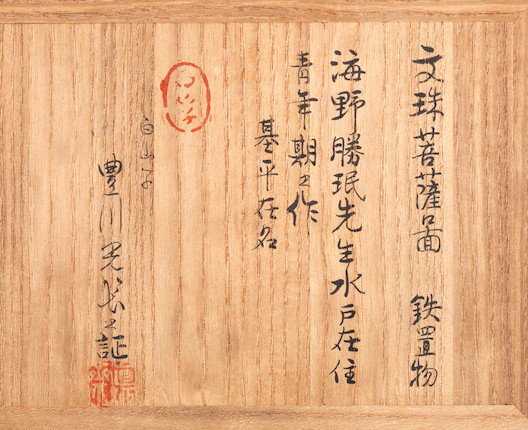 文珠菩薩 鉄置物
海野勝珉先生水戸在住
青年期之作
基平在名
白山子
豊川光長之証